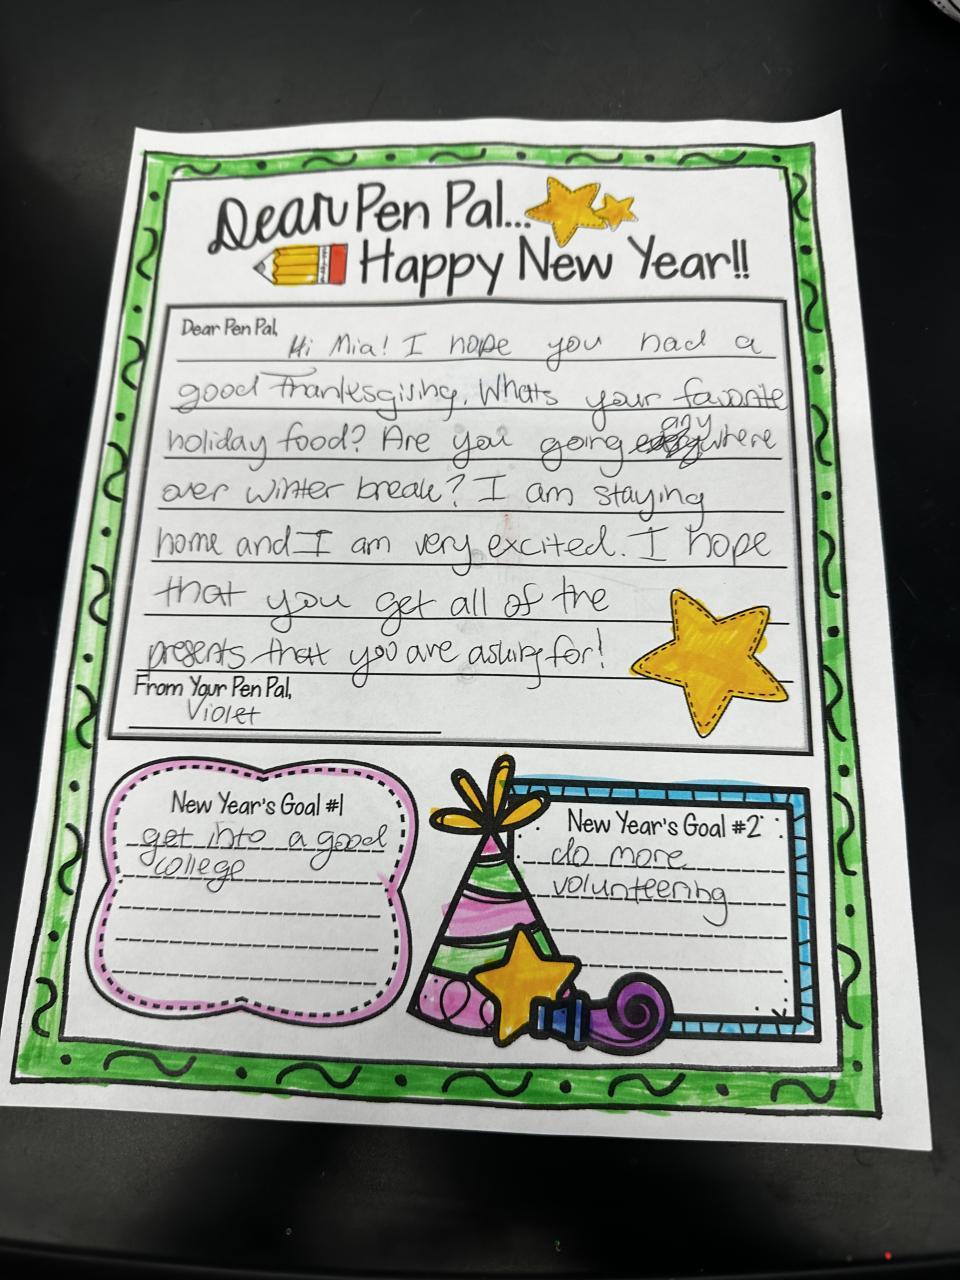 Dear Pen Pal...
Happy New Year!!
Dear Pen Pal,
Hi Mia! I hope you had a
good Thanksgiving. Whats your favorite
holiday food? Are you going anywhere
over winter break? I am staying
home and I am very excited. I hope
that you get all of the
presents that you are asking for!
From Your Pen Pal,
Violet
New Year's Goal #1
get into a good
college
New Year's Goal #2
do more
volunteering